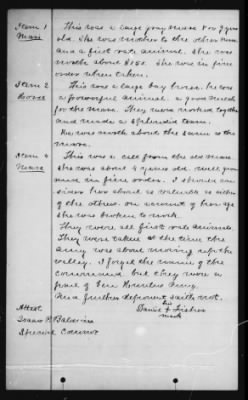 Item 1 This was a large gray mare 8 or 9 years
Mare old. She was mother to the other mare
and a first rate animal. She was
worth about $150. She was in fine
order when taken.
Item 2 This was a large bay horse. he was
Horse a powerful animal. a good match
for the mare. They worked together
and made a splendid team.
He was worth about the same as the
mare.
Item 4 This was a colt from the old mare.
Mare she was about 4 years old. well grown
and in fine order. I should con-
sider her about as valuable as either
of the others. on account of her age
she was broken to work.
They were all first rate animals.
They were taken at the time the
army was about moving up the
valley. I forget the name of the
command but they were a
part of Gen Hunters Army.
And further deponent saith not.
his
Attest Daniel Fisher
mark
Isaac P. Baldwin
Special Commr